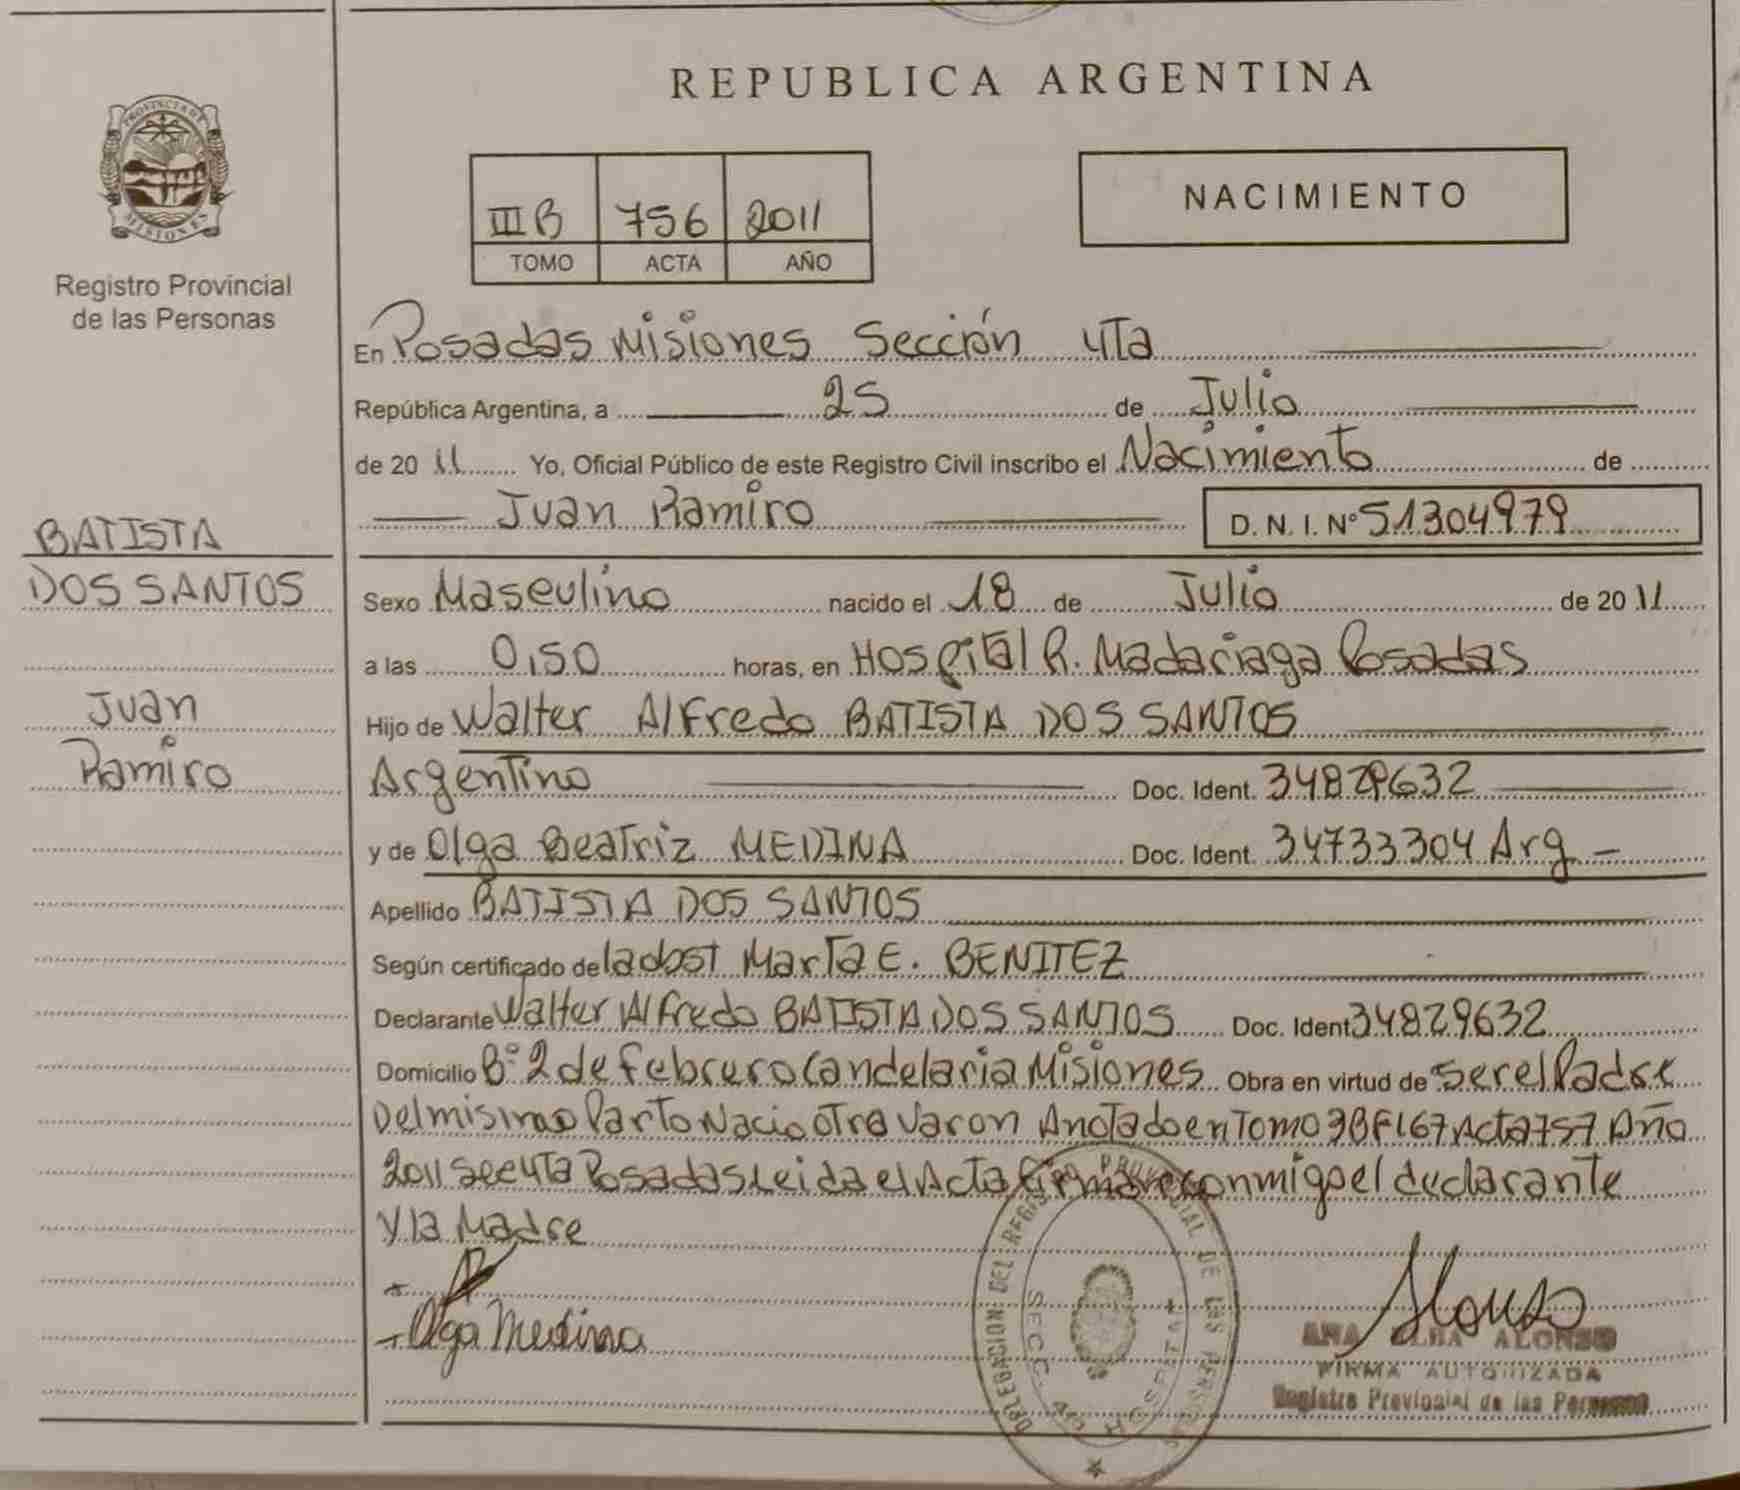 REPUBLICA ARGENTINA
PROVINCIA DE
MISIONES
Registro Provincial
de las Personas
III B 756 2011
TOMO ACTA AÑO
NACIMIENTO
En Posadas Misiones Sección 4Ta
República Argentina, a 25 de Julio
de 20 11 Yo, Oficial Público de este Registro Civil inscribo el Nacimiento de
Juan Ramiro D. N. I. Nº 51304979
BATISTA
DOS SANTOS
Juan
Ramiro
Sexo Masculino nacido el 18 de Julio de 20 11
a las 0,50 horas, en Hospital R. Madariaga Posadas
Hijo de Walter Alfredo BATISTA DOS SANTOS
Argentino Doc. Ident. 34829632
y de Olga Beatriz MEDINA Doc. Ident. 34733304 Arg
Apellido BATISTA DOS SANTOS
Según certificado de la obst Marta E. BENITEZ
Declarante Walter Alfredo BATISTA DOS SANTOS Doc. Ident 34829632
Domicilio Bº 2 de febrero Candelaria Misiones Obra en virtud de ser el Padre
Del mismo Parto Nacio otro Varon Anotado en Tomo 3B F167 Acta 757 Año
2011 Sec 4Ta Posadas Leida el Acta conmigo el declarante
y la Madre
Olga Medina
Alonso
ANA ALBA ALONSO
FIRMA AUTORIZADA
Registro Provincial de las Personas
DELEGACION DEL REGISTRO PROVINCIAL DE LAS PERSONAS
SECC. 4ta HOSPITAL